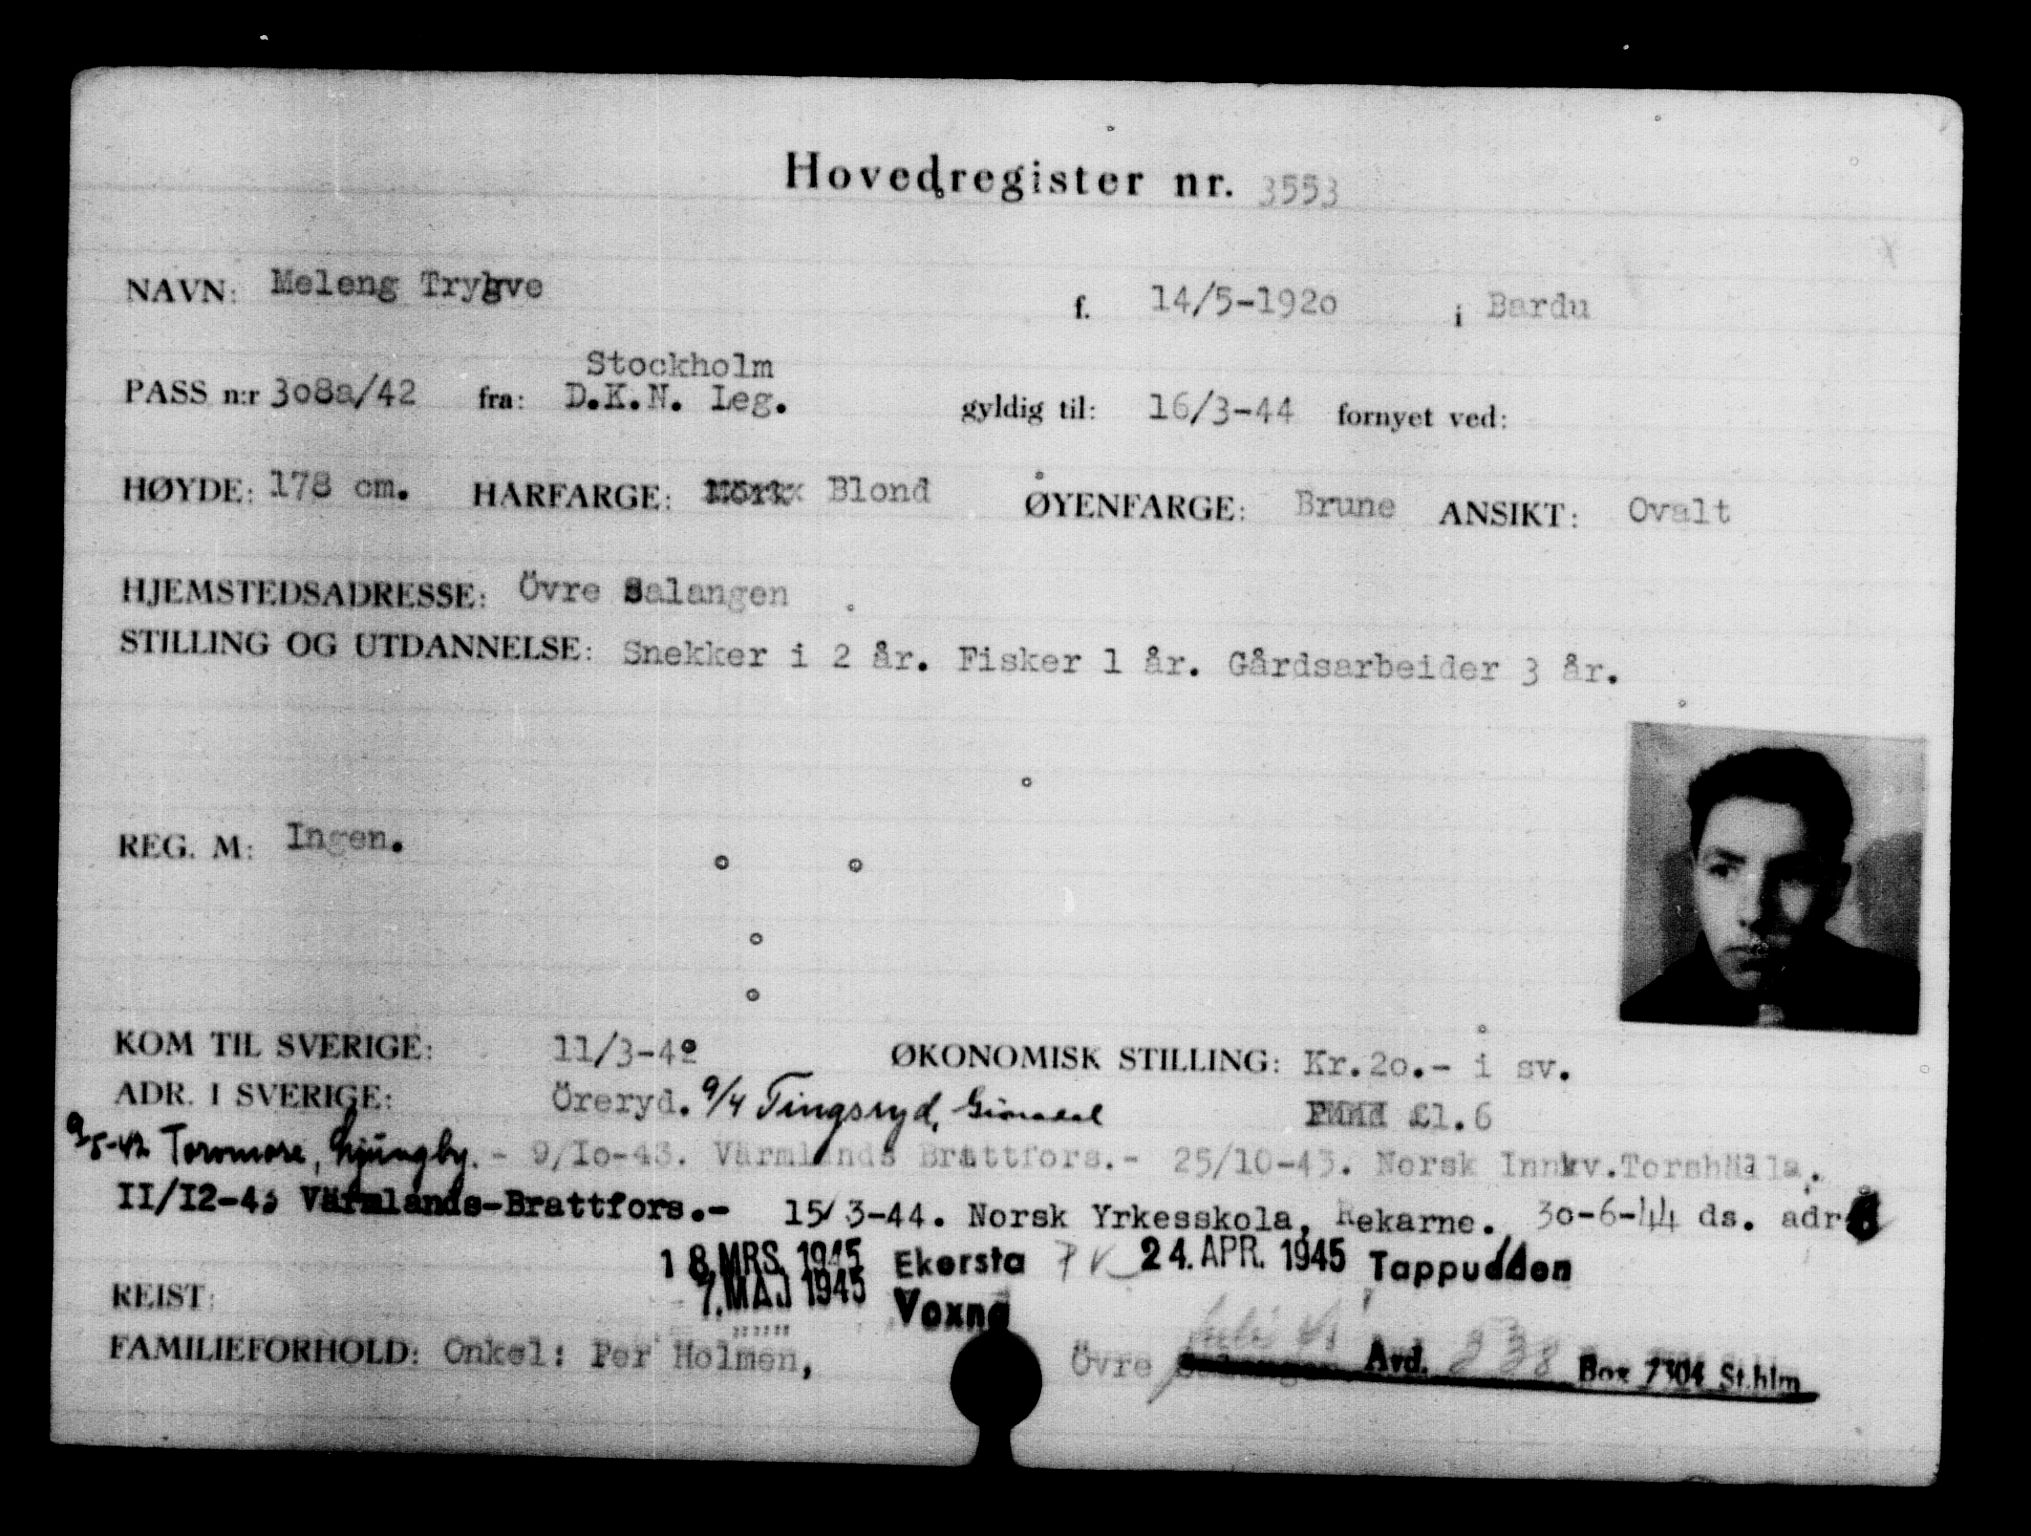 Hovedregister nr. 3553
NAVN: Meleng Trygve f. 14/5-192o i Bardu
Stockholm
PASS n:r 3o8a/42 fra: D.K.N. Leg. gyldig til: 16/3-44 fornyet ved:
HØYDE: 178 cm. HÅRFARGE: Mörk Blond ØYENFARGE: Brune ANSIKT: Ovalt
HJEMSTEDSADRESSE: Övre Salangen
STILLING OG UTDANNELSE: Snekker i 2 år. Fisker 1 år. Gårdsarbeider 3 år.
REG. M: Ingen.
KOM TIL SVERIGE: 11/3-42 ØKONOMISK STILLING: Kr.2o.- i sv.
ADR. I SVERIGE: Öreryd. 9/4 Tingsryd, £1.6
9/5-42 Toromore, Ljungby. - 9/Io-43. Värmlands Brattfors.- 25/10-43. Norsk Innkv.Torshälla.
II/I2-43 Värmlands-Brattfors.- 15/3-44. Norsk Yrkesskola, Rekarne. 3o-6-44 ds. adr
18. MRS. 1945 Ekersta 24. APR. 1945 Tappudden
REIST: 7. MAJ 1945 Voxna
FAMILIEFORHOLD: Onkel: Per Holmen, Övre Salangen Avd. 538 Box 7304 St.hlm